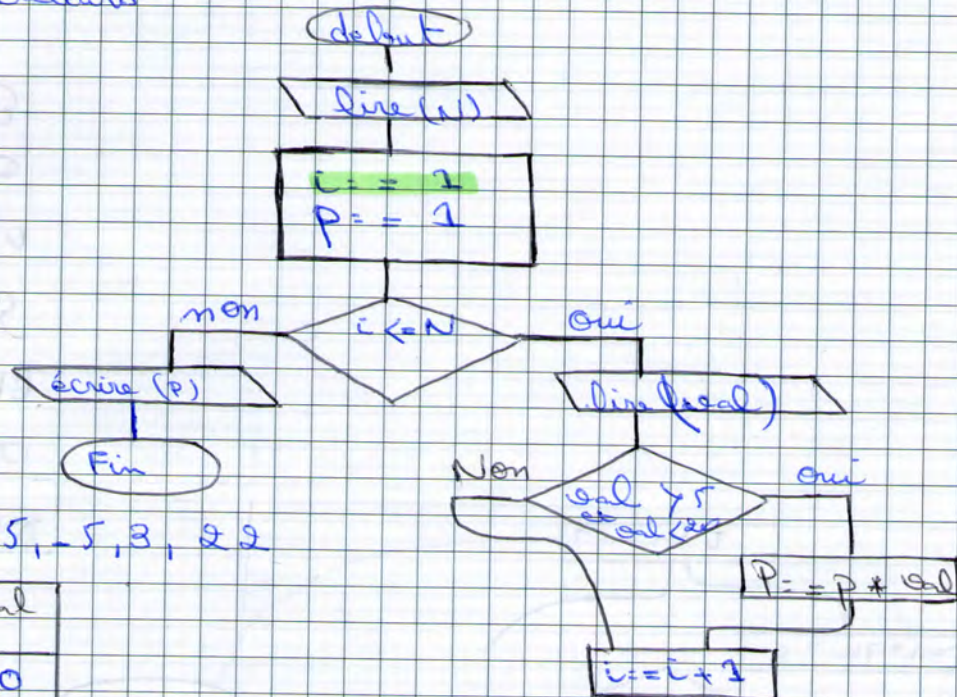 debut
lire (N)
i := 1
P := 1
i <= N
non
oui
écrire (P)
lire (val)
Fin
Non
val > 5
oui
5, -5, 3, 22
P := P * val
al
0
i := i + 1